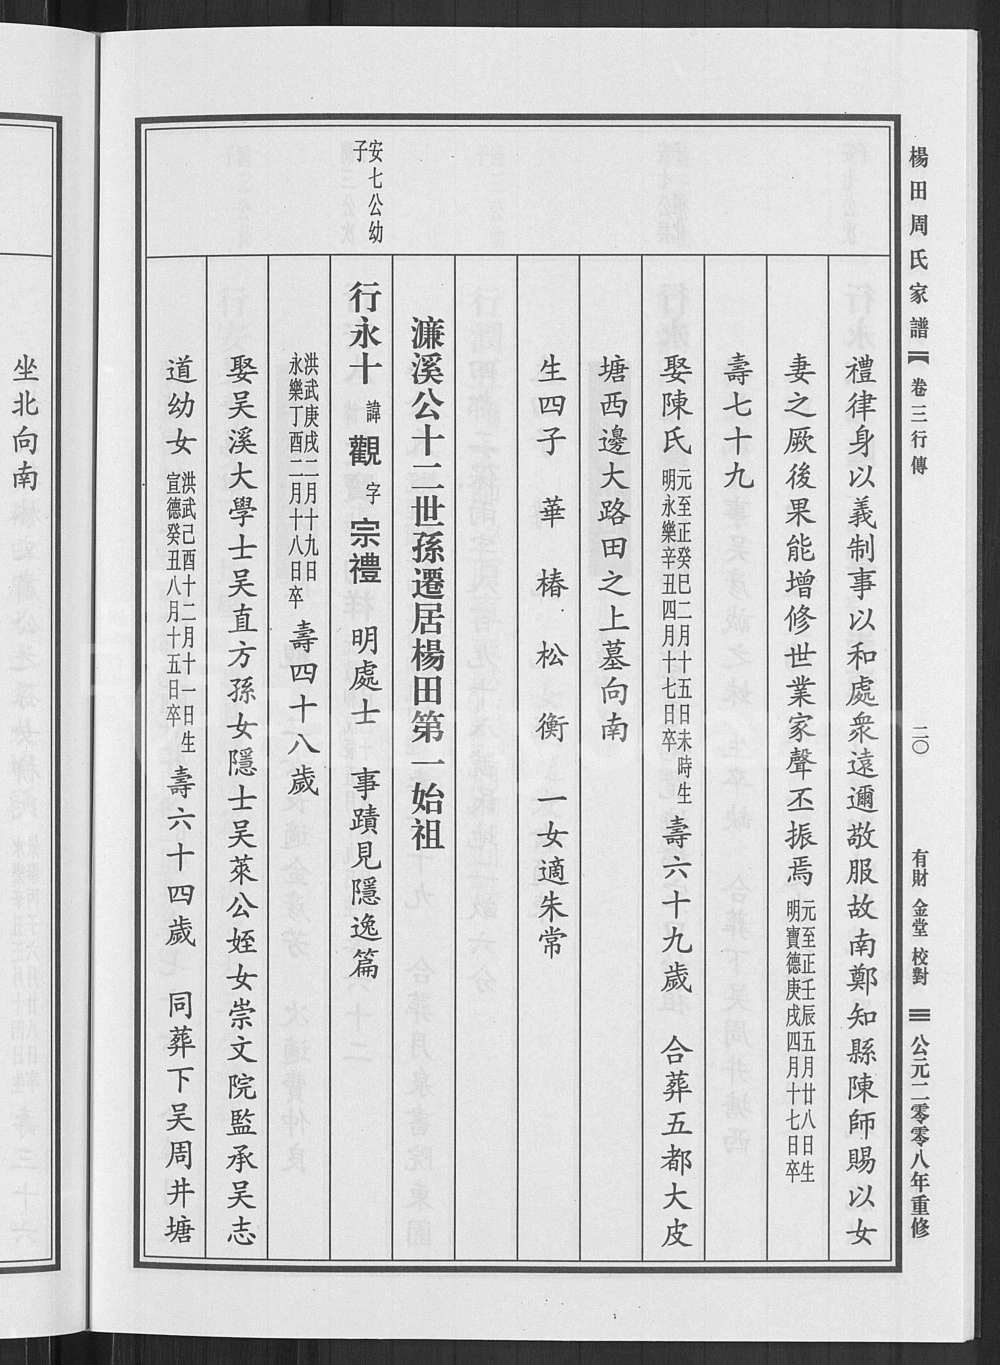 楊田周氏家譜 卷三行傳 二〇 有財 金堂 校對 公元二零零八年重修
禮律身以義制事以和處衆遠邇敬服故南鄭知縣陳師賜以女
妻之厥後果能增修世業家聲丕振焉 元至正壬辰五月廿八日生 明寶德庚戌四月十七日卒
壽七十九
娶陳氏 元至正癸巳二月十五日未時生 明永樂辛丑四月十七日卒 壽六十九歲 合葬五都大皮
塘西邊大路田之上墓向南
生四子 華 椿 松 衡 一女適朱常
濂溪公十二世孫遷居楊田第一始祖
安七公幼子
行永十 諱 觀 字 宗禮 明處士 事蹟見隱逸篇
洪武庚戌二月十九日 永樂丁酉二月十八日卒 壽四十八歲
娶吴溪大學士吴直方孫女隱士吴萊公姪女崇文院監承吴志
道幼女 洪武己酉十二月十一日生 宣德癸丑八月十五日卒 壽六十四歲 同葬下吴周井塘
坐北向南